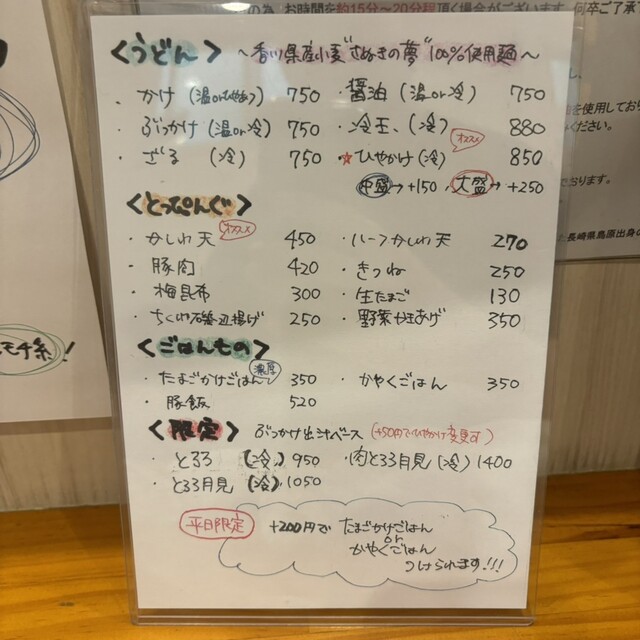 の為、お時間を約15分~20分程頂く場合がございます。何卒ご了承
<うどん> ~香川県産小麦"さぬきの夢"100%使用麺~
・かけ (温orひやあつ) 750 ・醤油 (温or冷) 750
・ぶっかけ (温or冷) 750 ・冷玉、(冷) 880
オススメ
・ざる (冷) 750 ★ひやかけ (冷) 850
中盛→+150、大盛→+250
を使用してお
ください。
ております。
長崎県島原出身の
<とっぴんぐ>
オススメ
・かしわ天 450 ・ハーフかしわ天 270
・豚肉 420 ・きつね 250
・梅昆布 300 ・生たまご 130
・ちくわ磯辺揚げ 250 ・野菜かきあげ 350
モチ系!
<ごはんもの>
濃厚
・たまごかけごはん 350 ・かやくごはん 350
・豚飯 520
<限定> ぶっかけ出汁ベース (+50円でひやかけ変更可)
・とろろ (冷) 950 ・肉とろろ月見 (冷) 1400
・とろろ月見 (冷) 1050
平日限定 +200円で たまごかけごはん
or
かやくごはん
つけられます!!!